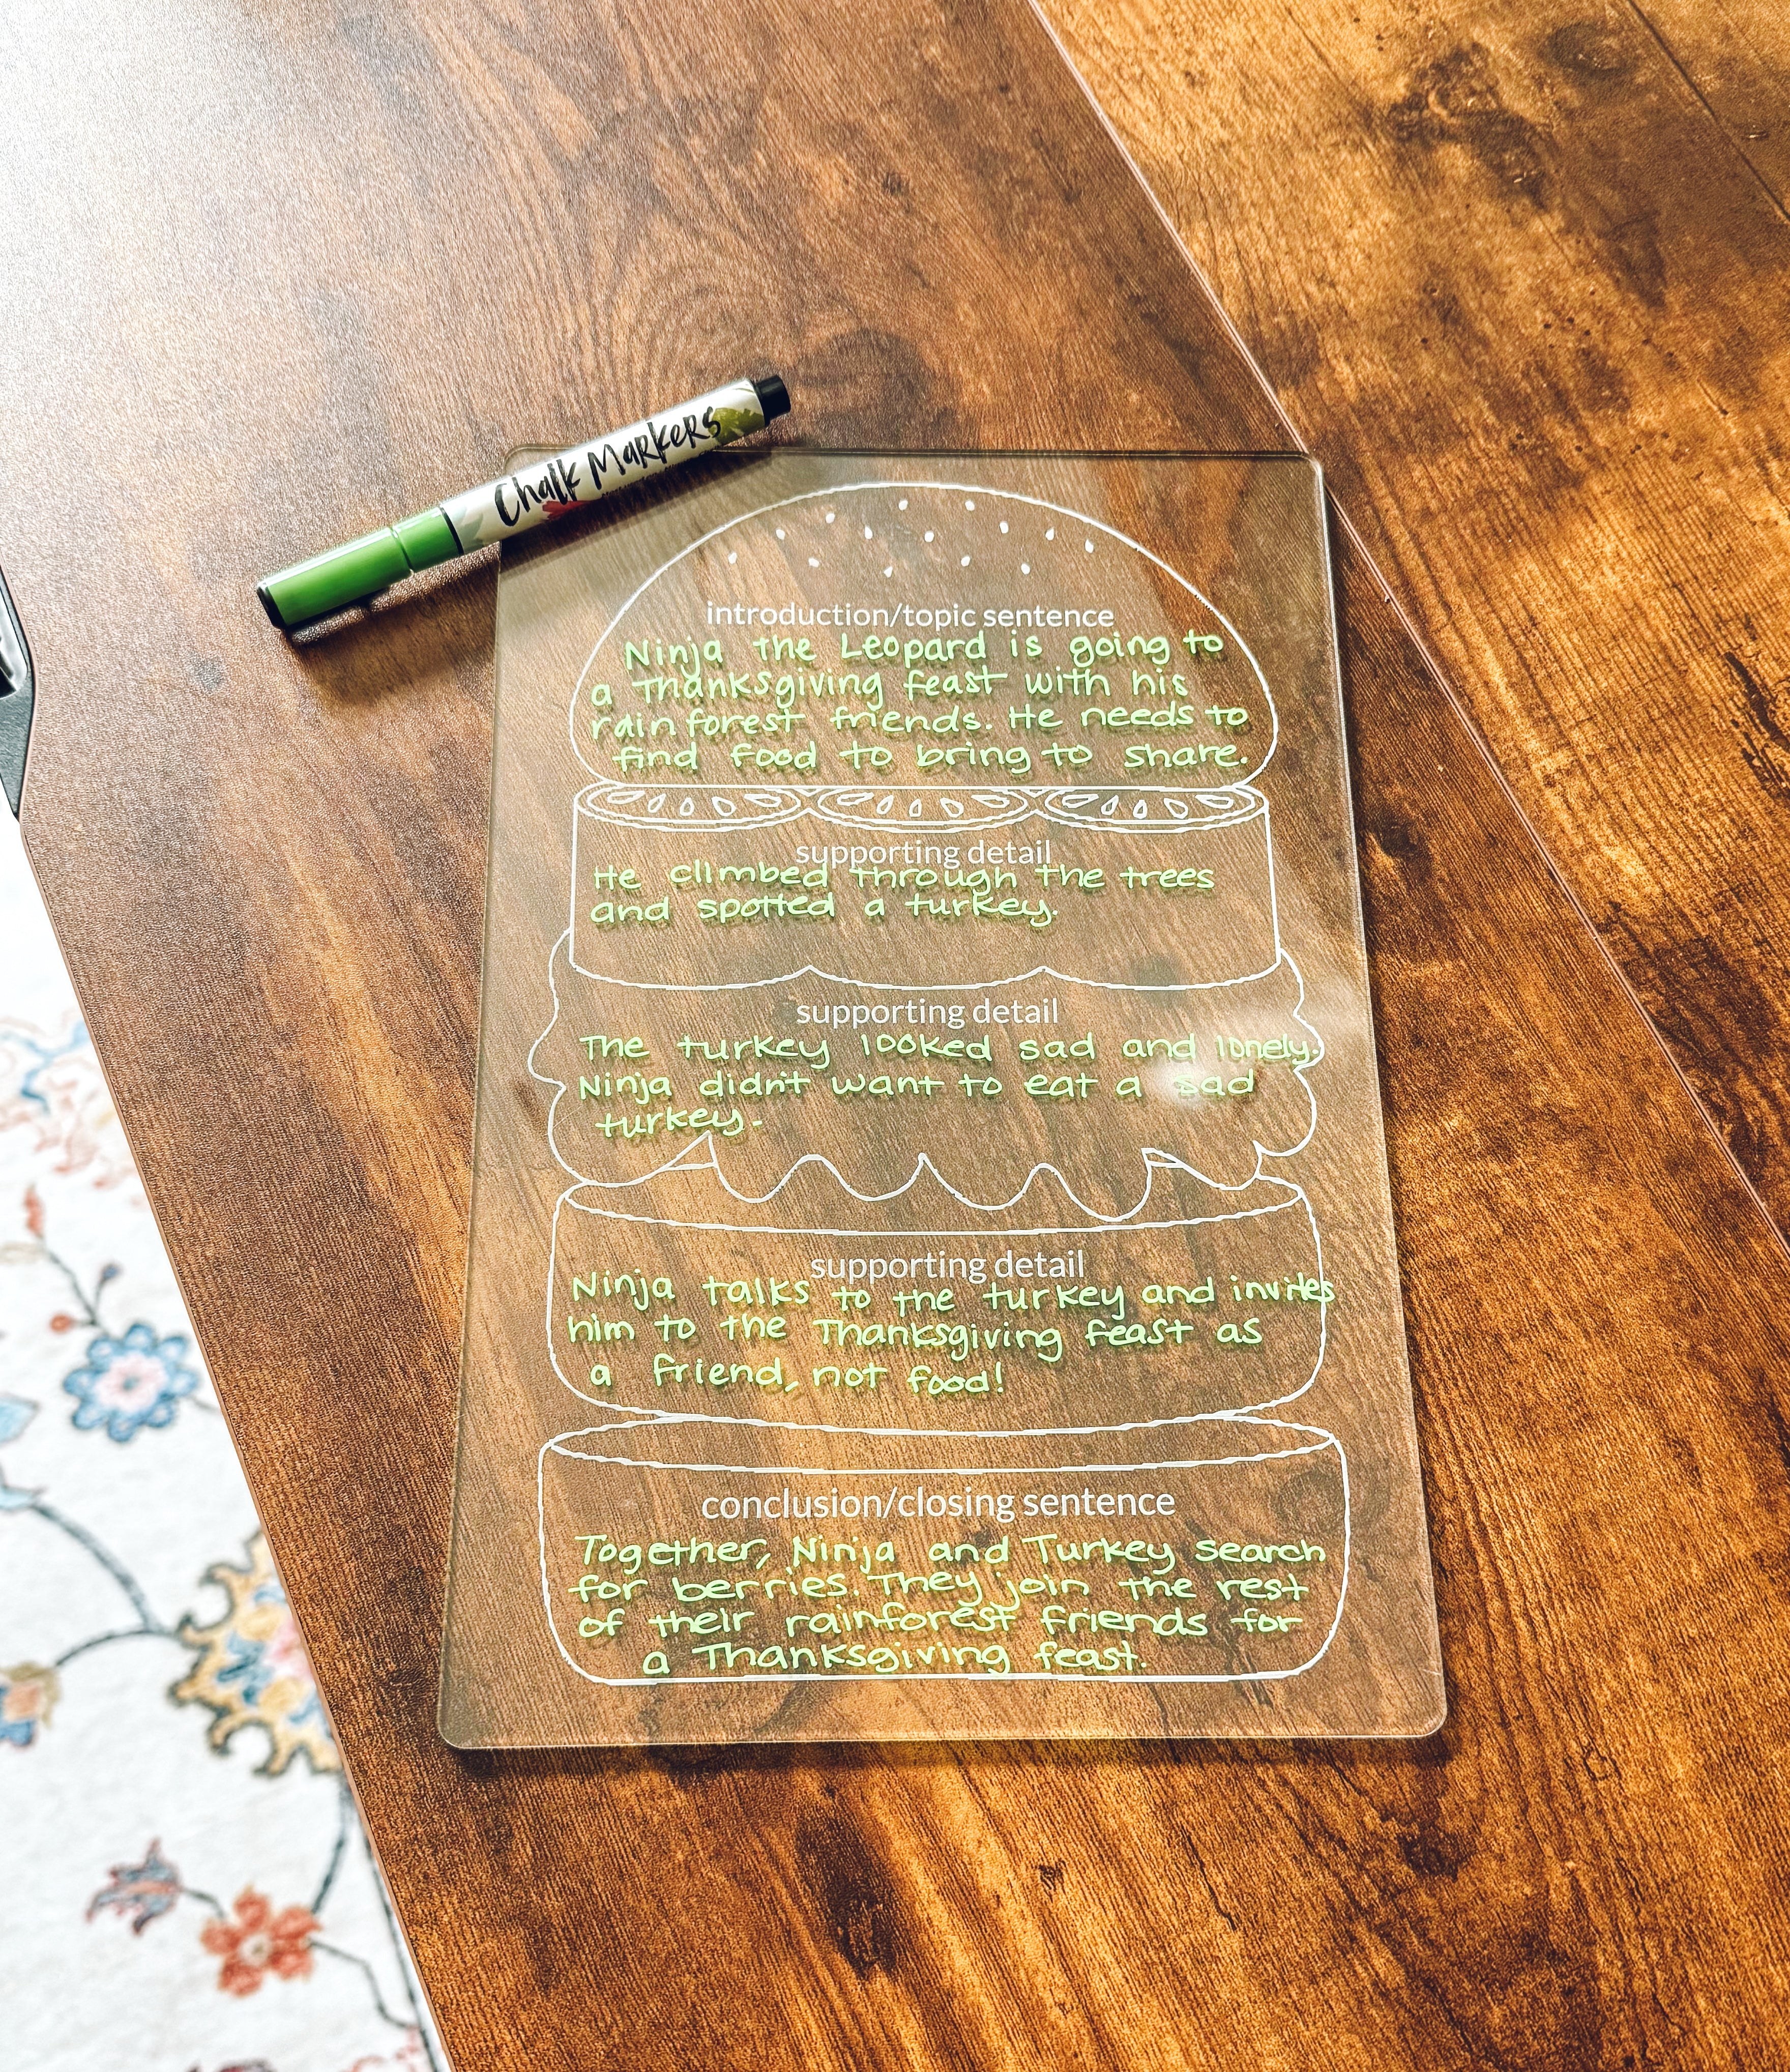 Chalk Markers
introduction/topic sentence
Ninja the Leopard is going to
a Thanksgiving feast with his
rainforest friends. He needs to
find food to bring to share.
supporting detail
He climbed through the trees
and spotted a turkey.
supporting detail
The turkey looked sad and lonely.
Ninja didn't want to eat a sad
turkey.
supporting detail
Ninja talks to the turkey and invites
him to the Thanksgiving feast as
a friend, not food!
conclusion/closing sentence
Together, Ninja and Turkey search
for berries. They join the rest
of their rainforest friends for
a Thanksgiving feast.